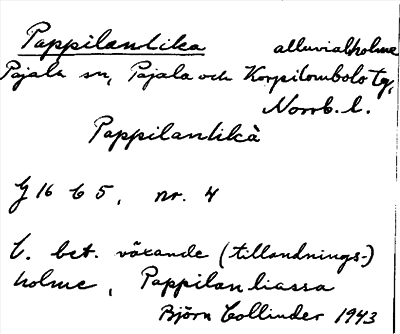 Pappilanlika alluvialholme
Pajala sn, Pajala och Korpilombolo tg,
Norrb. l.
Pappilanlikà
J 16 C 5, nr. 4
C. bet. växande (tillandnings-)
holme, Pappilan liassa
Björn Collinder 1943